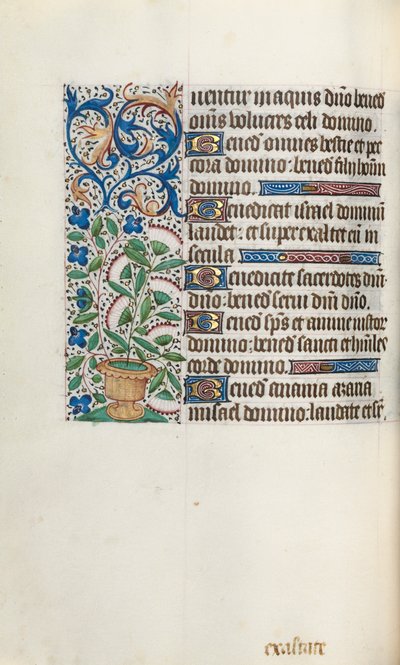 uentur in aquis dño bened
om̃s uolucres celi domino.
Bened̃ omnes bestie et pec
cora domino: bened̃ filij hom̃
domino.
Benedicat israel dominũ
laudet: et superexaltet eũ in
secula
Benedicite sacerdotes dm̃
dño: bened̃ serui dm̃ dño.
Bened̃ sp̃s et anime iustor
domino: bened̃ sancti et hũiles
corde domino.
Bened̃ anania azaria
misael domino: laudate et sr̃
exaltate